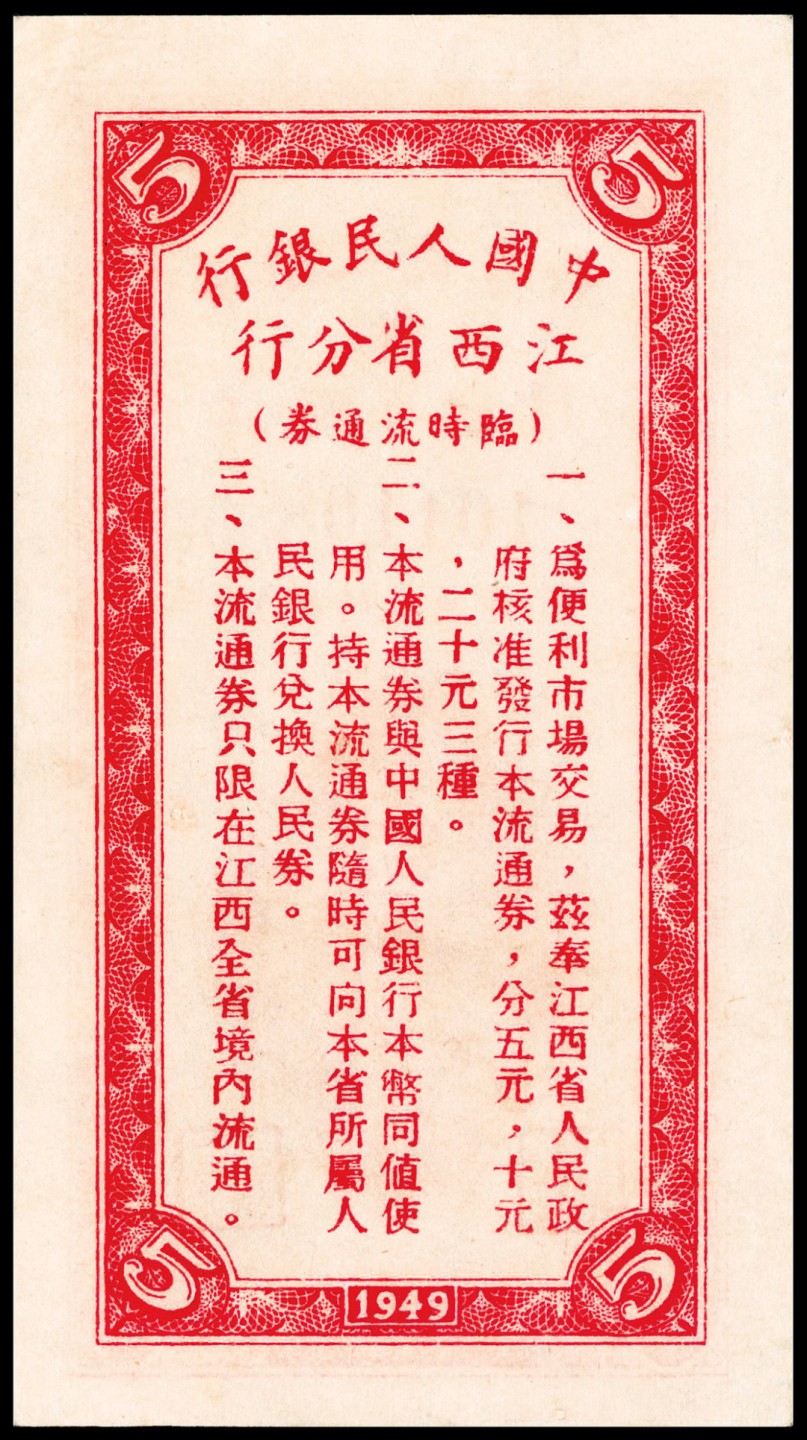 5
5
中國人民銀行
江西省分行
(臨時流通券)
一、爲便利市場交易,茲奉江西省人民政
府核准發行本流通券,分五元,十元
,二十元三種。
二、本流通券與中國人民銀行本幣同值使
用。持本流通券隨時可向本省所屬人
民銀行兌換人民券。
三、本流通券只限在江西全省境內流通。
5
1949
5